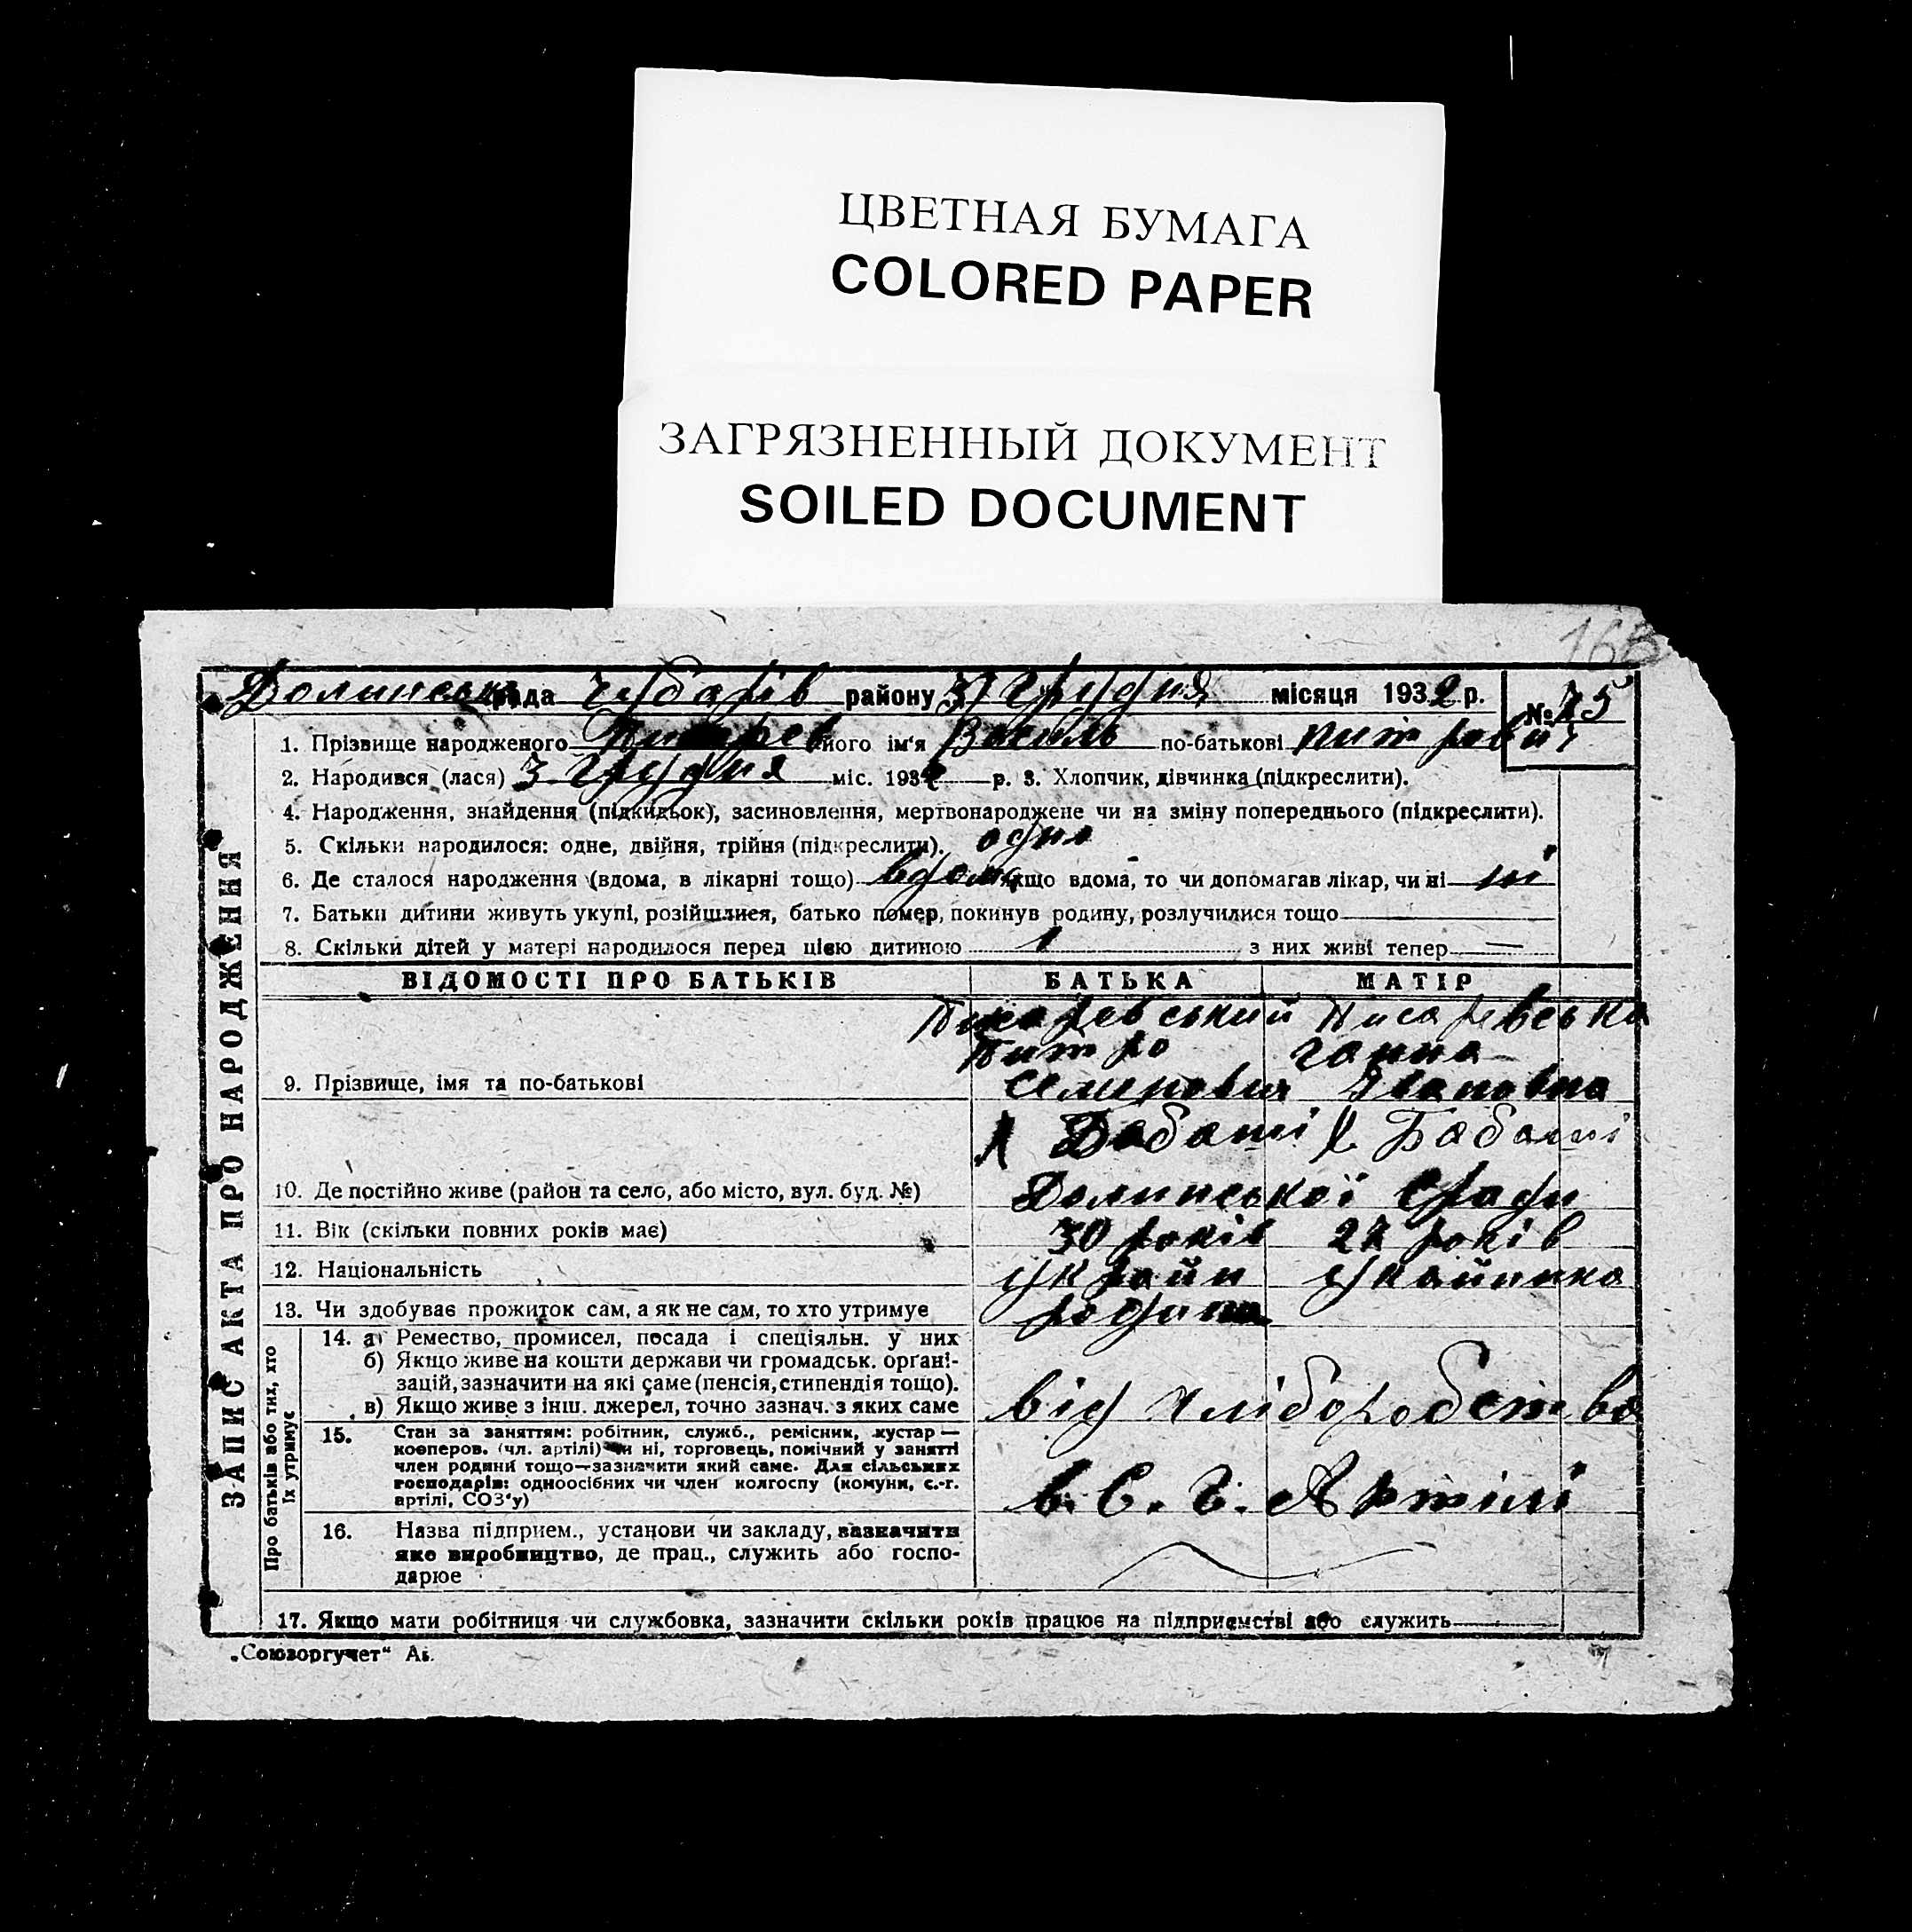 ЦВЕТНАЯ БУМАГА
COLORED PAPER
ЗАГРЯЗНЕННЫЙ ДОКУМЕНТ
SOILED DOCUMENT
163
Долинська рада Чубарів району 3/ грудня місяця 1932 р. № 75
1. Прізвище народженого його ім'я Василь по-батькові Питрович
2. Народився (лася) 3 грудня міс. 1932 р. 3. Хлопчик, дівчинка (підкреслити).
4. Народження, знайдення (підкидьок), засиновлення, мертвонароджене чи на зміну попереднього (підкреслити).
5. Скільки народилося: одне, двійня, трійня (підкреслити). одно
6. Де сталося народження (вдома, в лікарні тощо) вдома якщо вдома, то чи допомагав лікар, чи ні ні
7. Батьки дитини живуть укупі, розійшлися, батько помер, покинув родину, розлучилися тощо
8. Скільки дітей у матері народилося перед цією дитиною 1 з них живі тепер —
ЗАПИС АКТА ПРО НАРОДЖЕННЯ
ВІДОМОСТІ ПРО БАТЬКІВ БАТЬКА МАТІР
Писаревський Писаревська
Питро Ганна
9. Прізвище, імя та по-батькові Семенович Івановна
Х Бабаші Х Бабаші
10. Де постійно живе (район та село, або місто, вул. буд. №) Долинської с/ради
11. Вік (скільки повних років має) 30 років років
12. Національність україн україинка
13. Чи здобуває прожиток сам, а як не сам, то хто утримує родина
Про батьків або тих, хто їх утримує
14. а) Ремество, промисел, посада і спеціяльн. у них
б) Якщо живе на кошти держави чи громадськ. органі-
зацій, зазначити на які саме (пенсія, стипендія тощо).
в) Якщо живе з інш. джерел, точно зазнач. з яких саме від хліборобства
15. Стан за заняттям: робітник, служб., ремісник, кустар —
кооперов. (чл. артілі) чи ні, торговець, помічний у занятті
член родини тощо—зазначити який саме. Для сільських
господарів: одноосібних чи член колгоспу (комуни, с.-г.
артілі, СОЗ'у) в. С. Г. Артілі
16. Назва підприєм., установи чи закладу, зазначити
яке виробництво, де прац., служить або госпо-
дарює
17. Якщо мати робітниця чи службовка, зазначити скільки років працює на підприємстві або служить
„Союзоргучет“